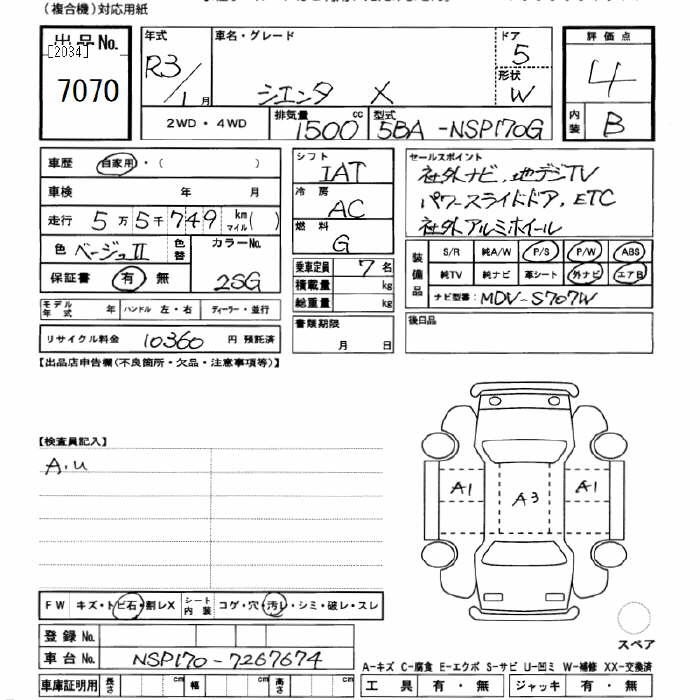 (複合機)対応用紙
出品No.
[2034]
7070
年式 R3/1月
車名・グレード
シエンタ X
ドア 5
形状 W
評価点 4
内装 B
2WD・4WD
排気量 1500 cc
型式 5BA-NSP170G
車歴 自家用・( )
車検 年 月
走行 5万5千749 km マイル( )
色 ベージュII 色替
カラーNo. 2SG
保証書 有 無
モデル年式 年 ハンドル 左・右 ディーラー・並行
リサイクル料金 10360 円 預託済
シフト IAT
冷房 AC
燃料 G
乗車定員 7名
積載量 kg
総重量 kg
書類期限
月 日
セールスポイント
社外ナビ、地デジTV
パワースライドドア、ETC
社外アルミホイール
装備品
S/R 純A/W P/S P/W ABS
純TV 純ナビ 革シート 外ナビ エアB
ナビ型番: MDV-S707W
後日品
【出品店申告欄(不良箇所・欠品・注意事項等)】
【検査員記入】
A.U
A1 A3 A1
FW キズ・トビ石・割レX シート内装 コゲ・穴・汚レ・シミ・破レ・スレ
登録No.
車台No. NSP170-7267674
車庫証明用 長さ cm 幅 cm 高さ cm
スペア
A-キズ C-腐食 E-エクボ S-サビ U-凹ミ W-補修 XX-交換済
工具 有・無 ジャッキ 有・無